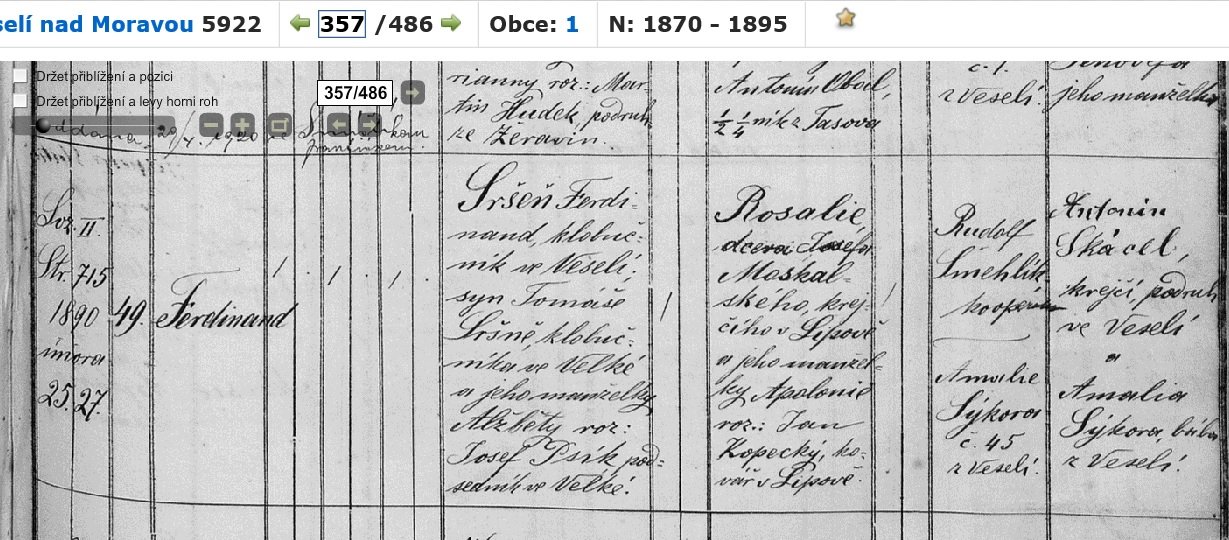 selí nad Moravou 5922
357 /486
Obce: 1
N: 1870 - 1895
Držet přiblížení a pozici
Držet přiblížení a levy horni roh
357/486
rianny roz.: Mar-
tin Hudek, podruh
ze Žeravin.
Antonín Obal,
½ ¼ ník z Tasova
č. 1.
z Veselí.
jeho manželka
1920 ve
Svaz. II.
Str. 715
1890
února
25. 27.
49.
Ferdinand
1. 1. 1.
Sršeň Ferdi-
nand, klobuč-
ník ve Veselí.
syn Tomáše
Sršně, klobuč-
níka ve Velké
a jeho manželky
Alžběty roz:
Josef Psík pod-
sedník ve Velké.
1
Rosalie,
dcera Josefa
Moskal-
ského, krej-
čího v Lipově
a jeho manžel-
ky Apolonie
roz.: Jan
Kopecký, ko-
vář v Lipově.
1
Rudolf
Smehlík
kooperátor
Amalie
Sýkora
č. 45
z Veselí.
Antonín
Skácel,
krejčí, podruh
ve Veselí
a
Amalia
Sýkora, bába
z Veselí.